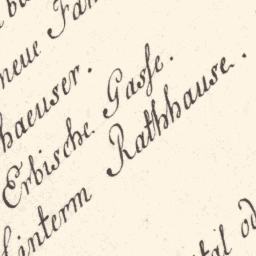 neue
haeuser.
Erbische Gasse.
Hinterm Rathhause.